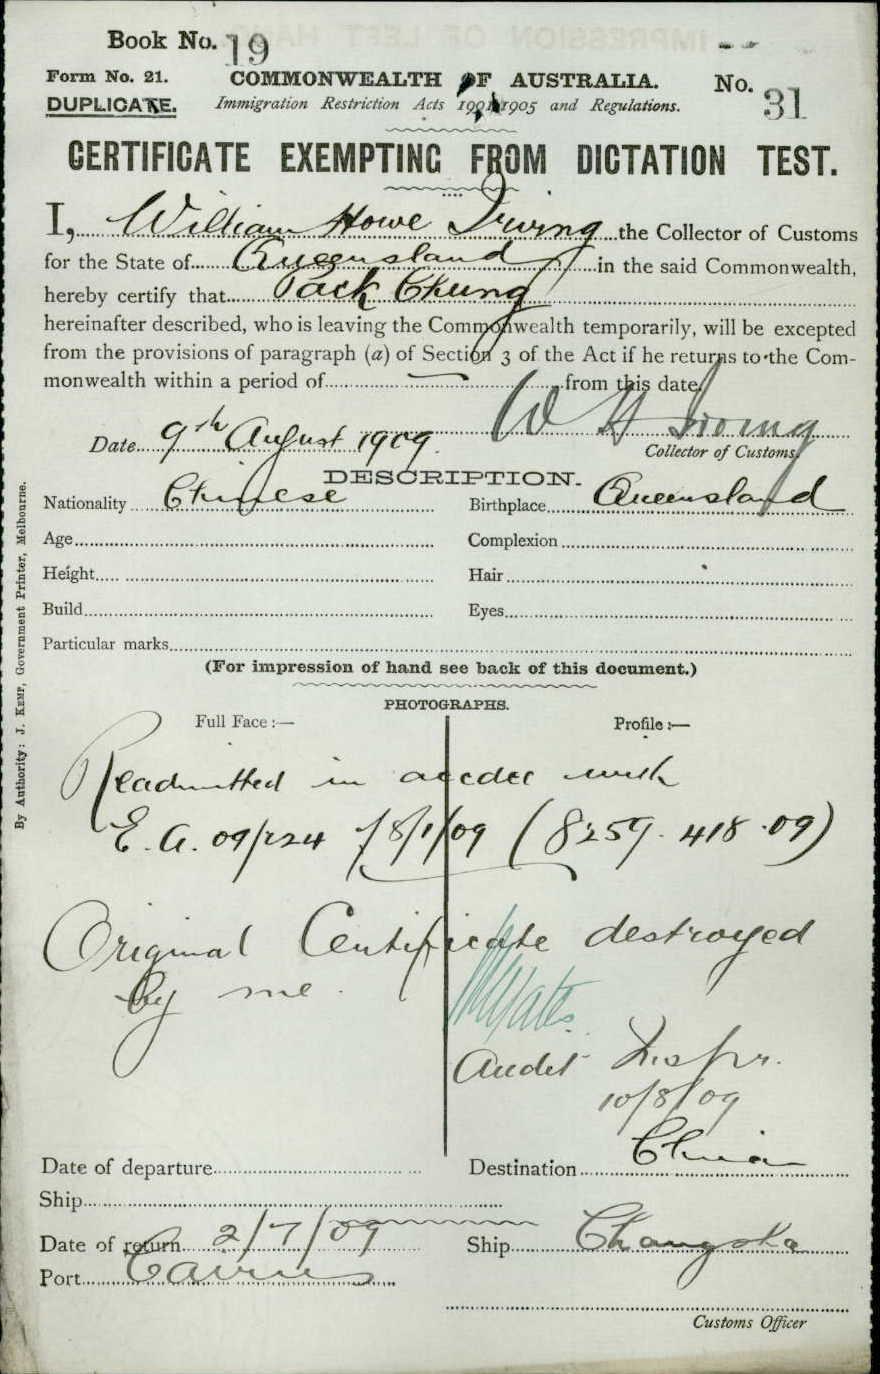 Book No. 19
Form No. 21. COMMONWEALTH OF AUSTRALIA. No. 31
DUPLICATE. Immigration Restriction Acts 1901-1905 and Regulations.
CERTIFICATE EXEMPTING FROM DICTATION TEST.
I, William Howe Irving the Collector of Customs
for the State of Queensland in the said Commonwealth,
hereby certify that Jack Chung
hereinafter described, who is leaving the Commonwealth temporarily, will be excepted
from the provisions of paragraph (a) of Section 3 of the Act if he returns to the Com-
monwealth within a period of from this date.
W H Irving
Date 9th August 1909. Collector of Customs.
DESCRIPTION.
Nationality Chinese Birthplace Queensland
Age Complexion
Height Hair
Build Eyes
Particular marks
(For impression of hand see back of this document.)
PHOTOGRAPHS.
Full Face :— Profile :—
Readmitted in accdce with
E. A. 09/224 of 8/1/09 (8259. 418 .09)
Original Certificate destroyed
by me.
Audit Inspr.
10/8/09
Date of departure Destination China
Ship
Date of return 2/7/09 Ship Changsha
Port Cairns
Customs Officer
By Authority: J. KEMP, Government Printer, Melbourne.